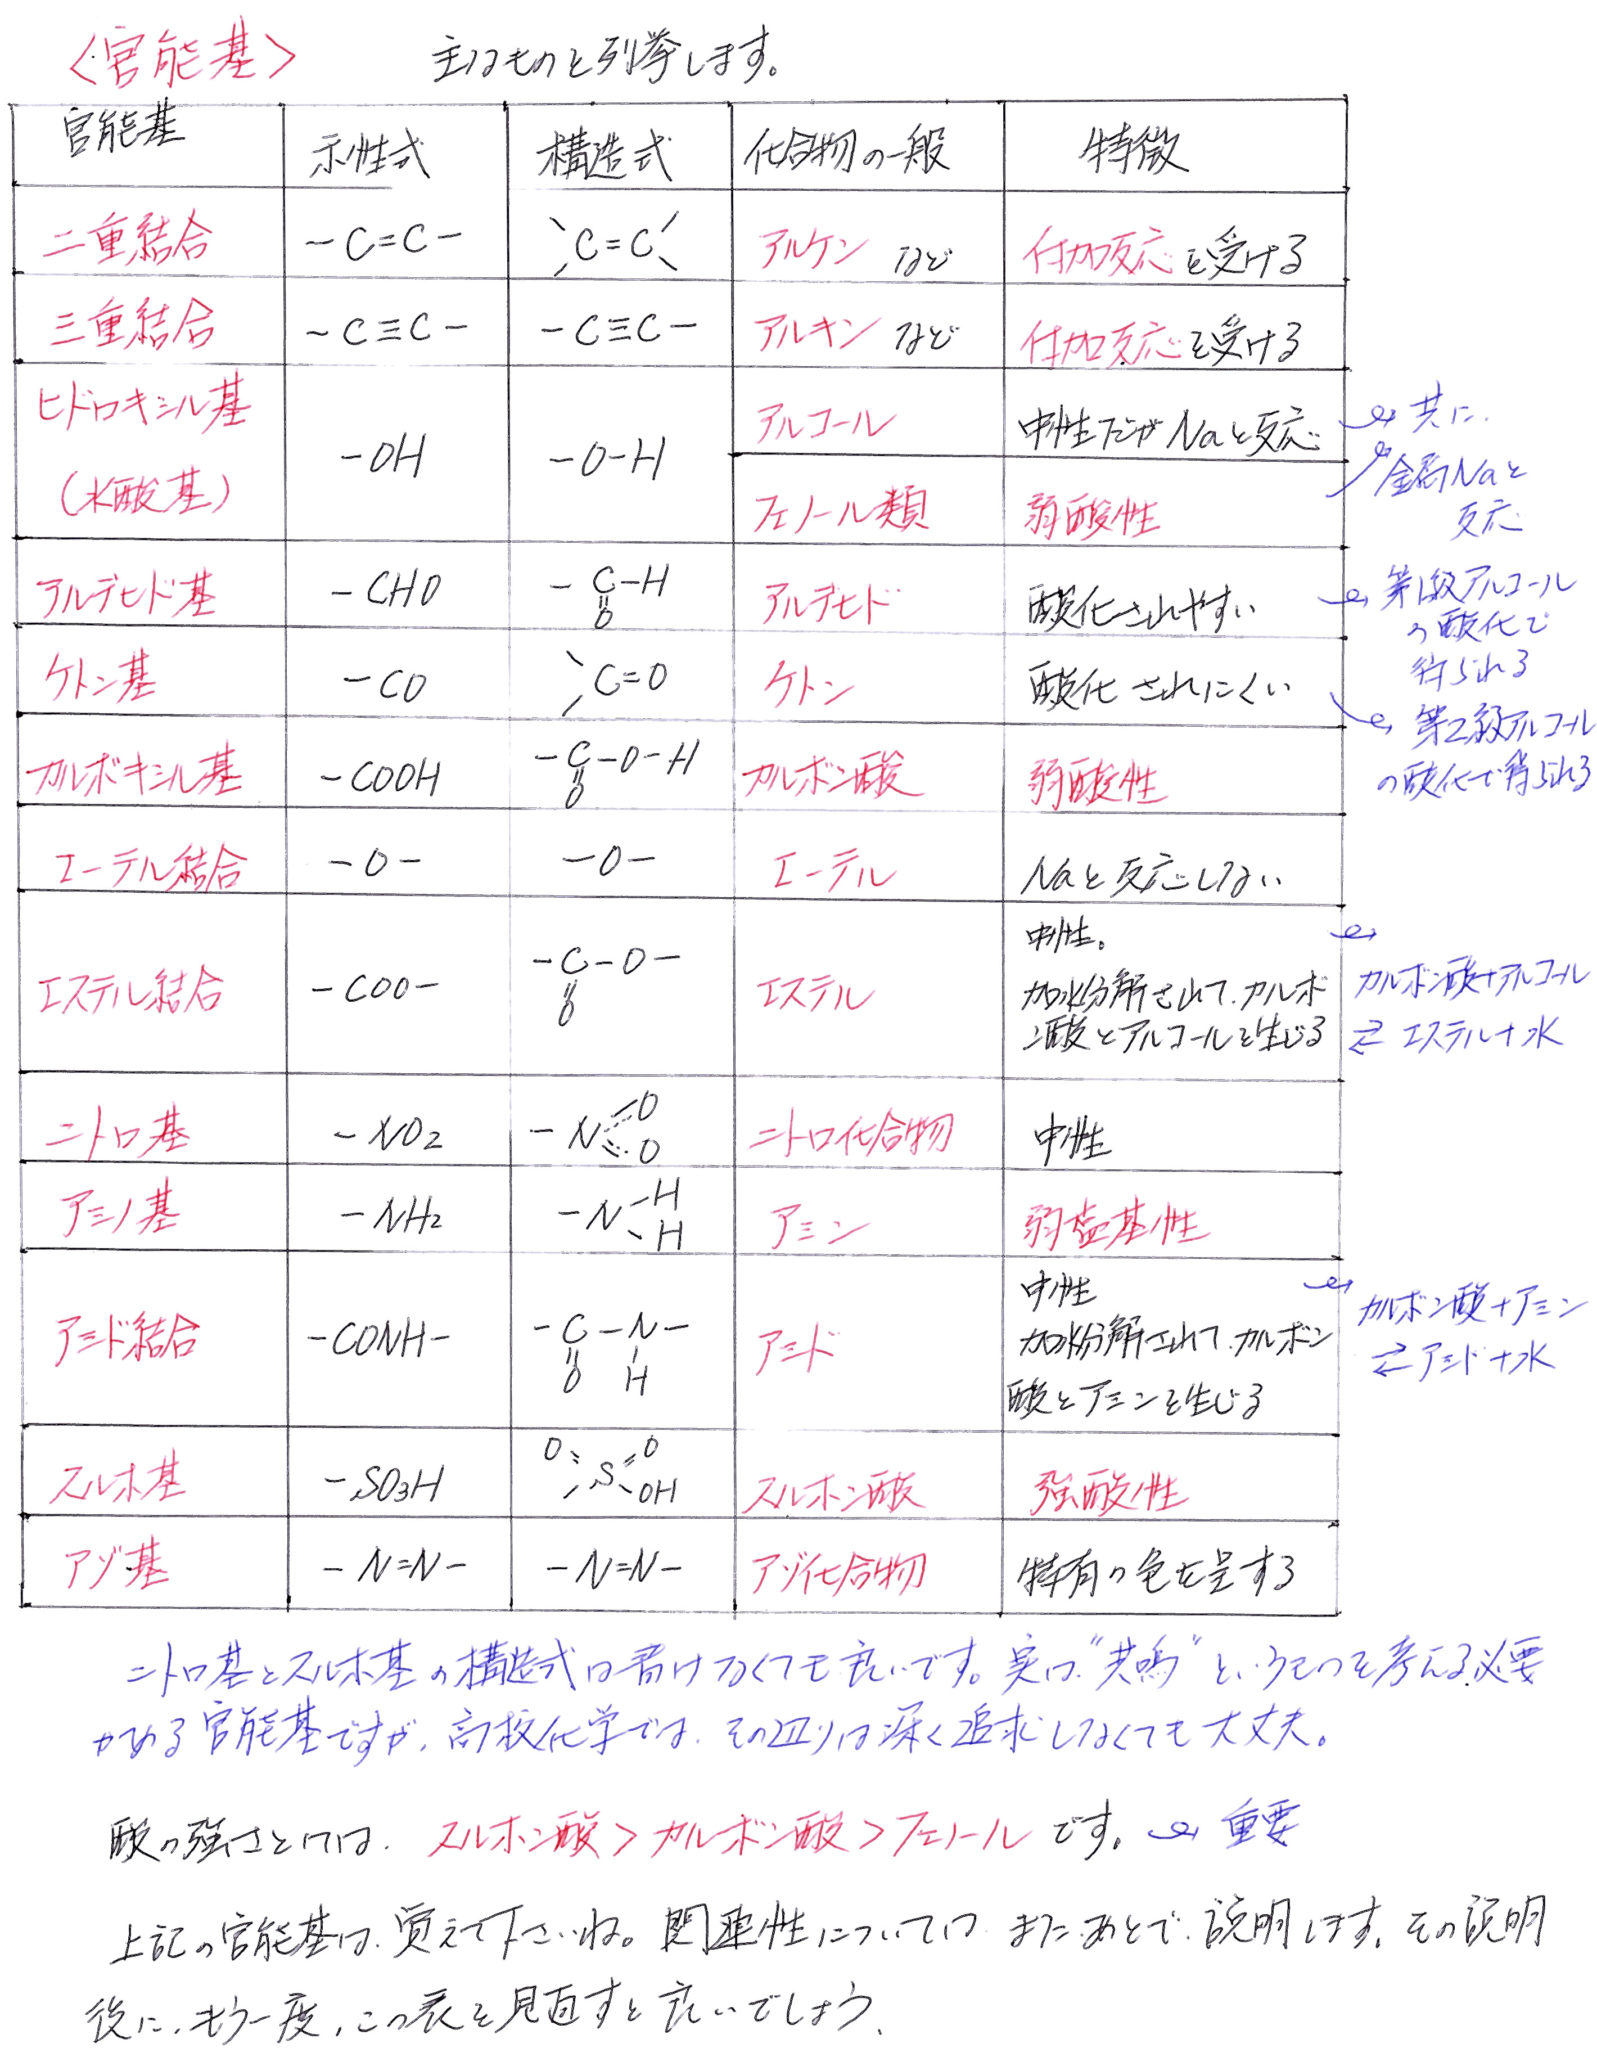 〈官能基〉 主なものを列挙します。
官能基 示性式 構造式 化合物の一般 特徴
二重結合 -C=C- C=C アルケン など 付加反応を受ける
三重結合 -C≡C- -C≡C- アルキン など 付加反応を受ける
ヒドロキシル基
(水酸基)
-OH -O-H
アルコール 中性だがNaと反応
フェノール類 弱酸性
共に
金属Naと
反応
アルデヒド基 -CHO -C-H
O
アルデヒド 酸化されやすい
第1級アルコール
の酸化で
得られる
ケトン基 -CO C=O ケトン 酸化されにくい
第2級アルコール
の酸化で得られる
カルボキシル基 -COOH -C-O-H
O
カルボン酸 弱酸性
エーテル結合 -O- -O- エーテル Naと反応しない
エステル結合 -COO- -C-O-
O
エステル
中性。
加水分解されて、カルボ
ン酸とアルコールを生じる
カルボン酸+アルコール
⇄ エステル+水
ニトロ基 -NO₂ -N
O
O
ニトロ化合物 中性
アミノ基 -NH₂ -N
H
H
アミン 弱塩基性
アミド結合 -CONH- -C-N-
O H
アミド
中性
加水分解されて、カルボン
酸とアミンを生じる
カルボン酸+アミン
⇄ アミド+水
スルホ基 -SO₃H
O O
S
OH
スルホン酸 強酸性
アゾ基 -N=N- -N=N- アゾ化合物 特有の色を呈する
ニトロ基とスルホ基の構造式は書けなくても良いです。実は、"共鳴"というモノを考える必要
がある官能基ですが、高校化学では、その辺りは深く追求しなくても大丈夫。
酸の強さとしては、スルホン酸>カルボン酸>フェノールです。 重要
上記の官能基は、覚えて下さいね。関連性については、また、あとで、説明します。その説明
後に、もう一度、この表を見直すと良いでしょう。